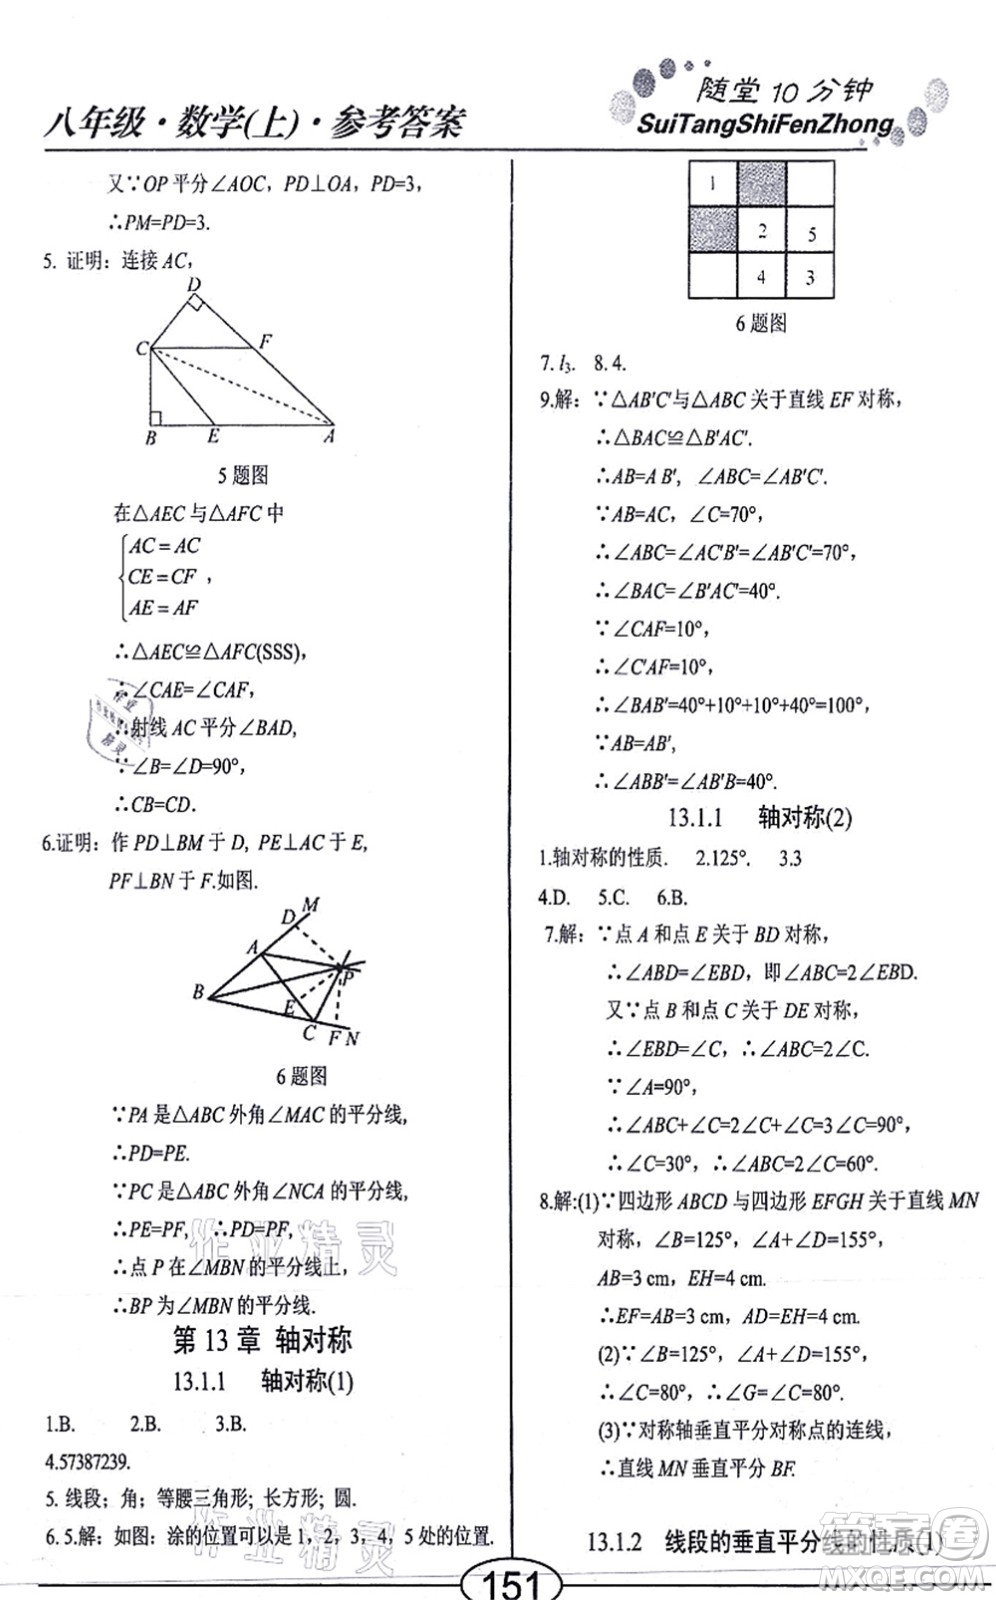 八年级·数学(上)·参考答案
随堂10分钟
SuiTangShiFenZhong
又∵OP平分∠AOC，PD⊥OA，PD=3，
∴PM=PD=3.
5. 证明：连接AC，
D
C
F
B
E
A
5题图
在△AEC与△AFC中
AC=AC
CE=CF ，
AE=AF
∴△AEC≌△AFC(SSS)，
∴∠CAE=∠CAF，
∴射线AC平分∠BAD，
∵∠B=∠D=90°，
∴CB=CD.
6.证明：作PD⊥BM于D, PE⊥AC于E,
PF⊥BN于F.如图.
M
D
A
P
B
E
C F N
6题图
∵PA是△ABC外角∠MAC的平分线,
∴PD=PE.
∵PC是△ABC外角∠NCA的平分线，
∴PE=PF， ∴PD=PF，
∴点P在∠MBN的平分线上，
∴BP为∠MBN的平分线.
第13章 轴对称
13.1.1 轴对称(1)
1.B. 2.B. 3.B.
4.57387239.
5. 线段；角；等腰三角形；长方形；圆.
6. 5.解：如图：涂的位置可以是1，2，3，4，5处的位置.
1
2 5
4 3
6题图
7. l₃. 8. 4.
9.解：∵△AB'C'与△ABC关于直线EF对称，
∴△BAC≌△B'AC'.
∴AB=A B'， ∠ABC=∠AB'C'.
∵AB=AC，∠C=70°，
∴∠ABC=∠AC'B'=∠AB'C'=70°，
∴∠BAC=∠B'AC'=40°.
∵∠CAF=10°，
∴∠C'AF=10°，
∴∠BAB'=40°+10°+10°+40°=100°，
∵AB=AB'，
∴∠ABB'=∠AB'B=40°.
13.1.1 轴对称(2)
1.轴对称的性质. 2.125°. 3.3
4.D. 5.C. 6.B.
7.解：∵点A和点E关于BD对称，
∴∠ABD=∠EBD，即∠ABC=2∠EBD.
又∵点B和点C关于DE对称，
∴∠EBD=∠C，∴∠ABC=2∠C.
∵∠A=90°，
∴∠ABC+∠C=2∠C+∠C=3∠C=90°，
∴∠C=30°，∴∠ABC=2∠C=60°.
8.解:(1)∵四边形ABCD与四边形EFGH关于直线MN
对称，∠B=125°，∠A+∠D=155°，
AB=3 cm，EH=4 cm.
∴EF=AB=3 cm，AD=EH=4 cm.
(2)∵∠B=125°，∠A+∠D=155°，
∴∠C=80°，∴∠G=∠C=80°.
(3)∵对称轴垂直平分对称点的连线，
∴直线MN垂直平分BF.
13.1.2 线段的垂直平分线的性质(1)
151
作业精灵
作业精灵
答案圈
MXQE.COM